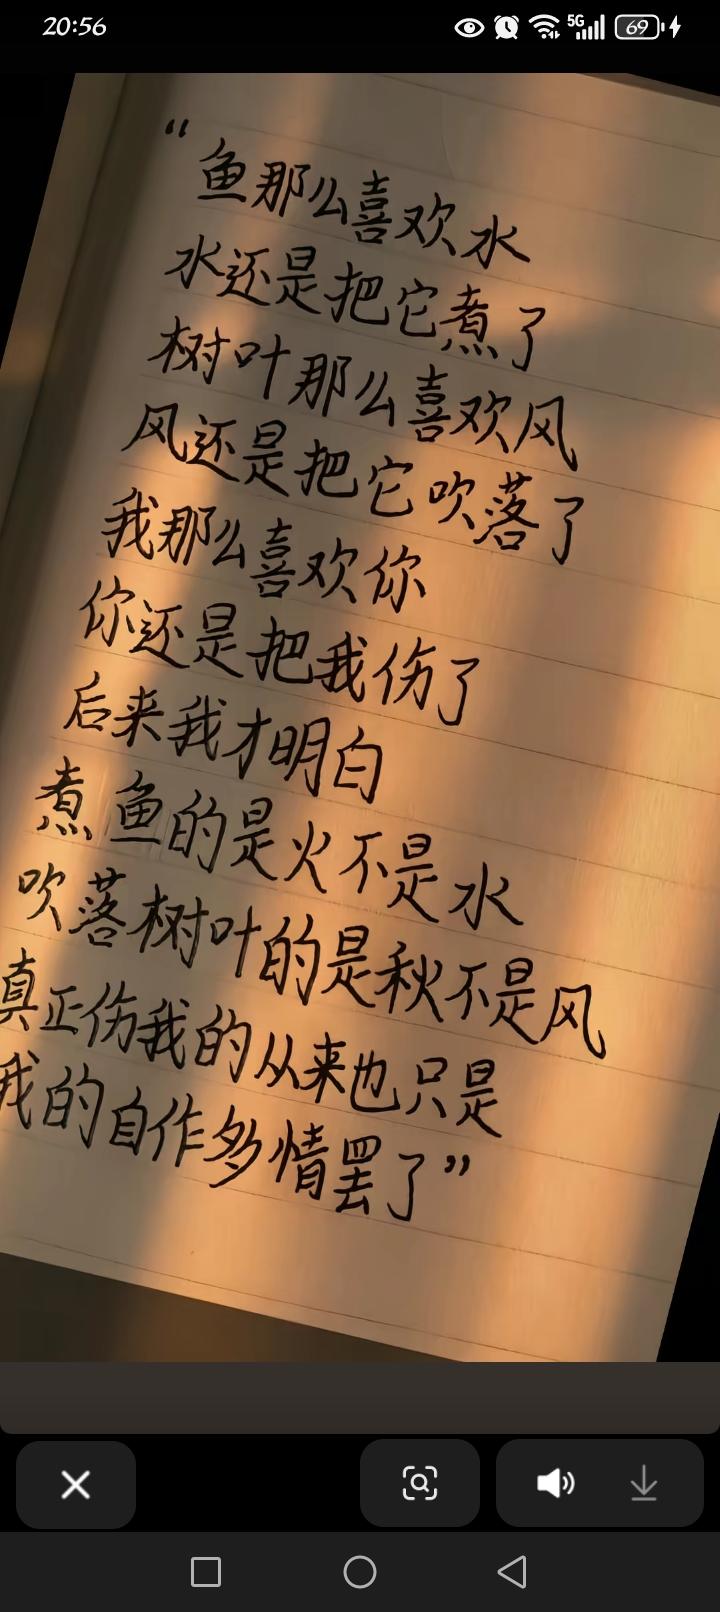 20:56
5G
69
“鱼那么喜欢水
水还是把它煮了
树叶那么喜欢风
风还是把它吹落了
我那么喜欢你
你还是把我伤了
后来我才明白
煮鱼的是火不是水
吹落树叶的是秋不是风
真正伤我的从来也只是
我的自作多情罢了”